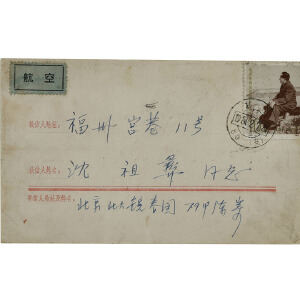 航空
收信人地址：福州宫巷11号
收信人姓名：沈祖彝同志
寄信人地址及姓名：北京北大镜春园79甲陈